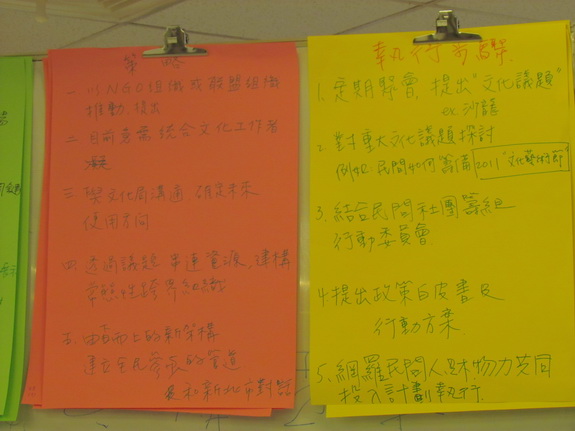 策略
一 以NGO組織或聯盟組織
推動、提出
二 目前 統合文化工作者
三 與文化局溝通 確定未來
使用方向
四 透過議題 串連資源,建構
常態性跨界組織
五 由下而上的新架構
建立全民參與的管道
和新北市對話
執行步驟
1. 定期聚會,提出"文化議題"
ex 沙龍
2. 對重大文化議題探討
例如:民間如何籌備 2011"文化藝術節"
3. 結合民間社團籌組
行動委員會
4. 提出政策白皮書及
行動方案
5. 網羅民間人、財、物力共同
投入計劃執行.